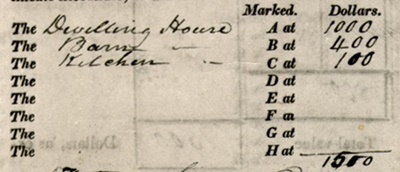 Marked. Dollars.
The Dwelling House A at 1000
The Barn - B at 400
The Kitchen - C at 100
The D at
The E at
The F at
The G at
The H at
1500